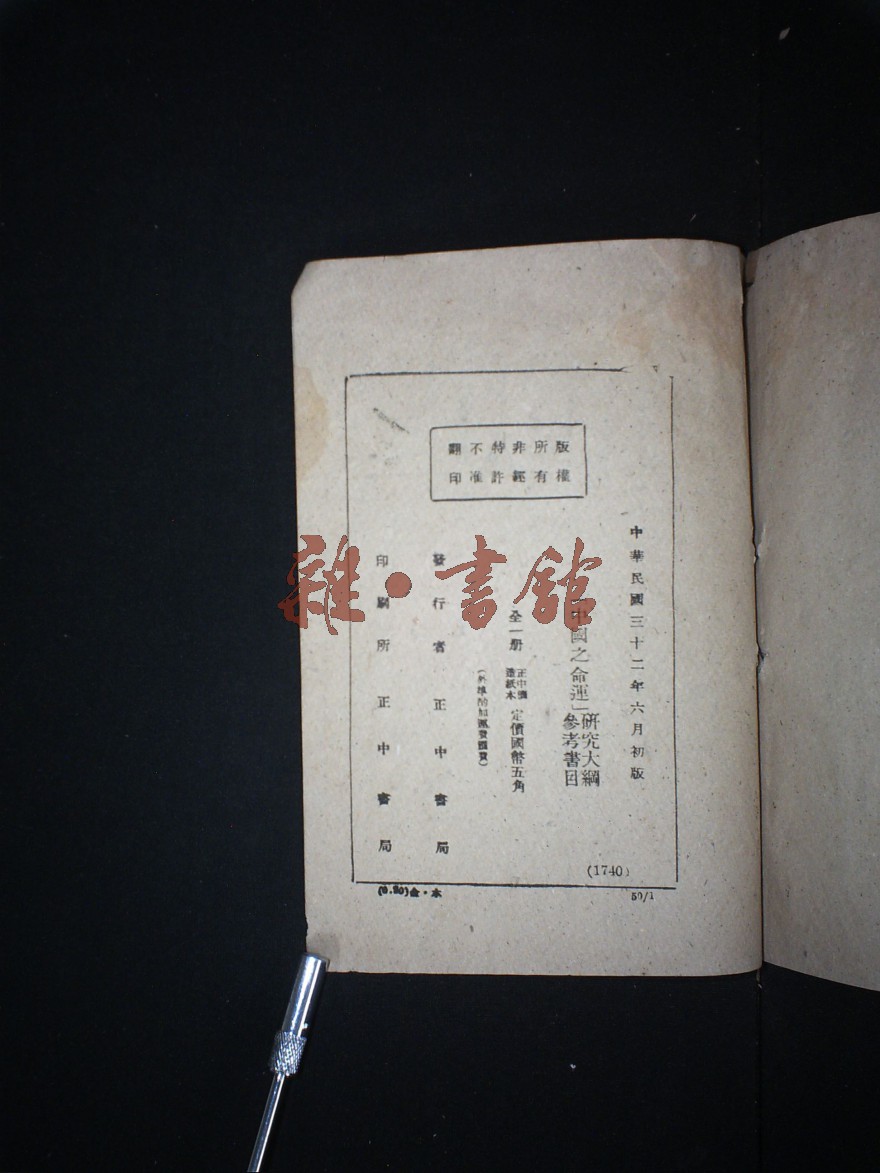 版權所有
非經特許
不准翻印
中華民國三十二年六月初版
「中國之命運」研究大綱
參考書目
全一册 正中
造紙本 定價國幣五角
(外埠酌加運費匯費)
發行者 正中書局
印刷所 正中書局
(1740)
(0.20)金·本
50/1
雜·書館